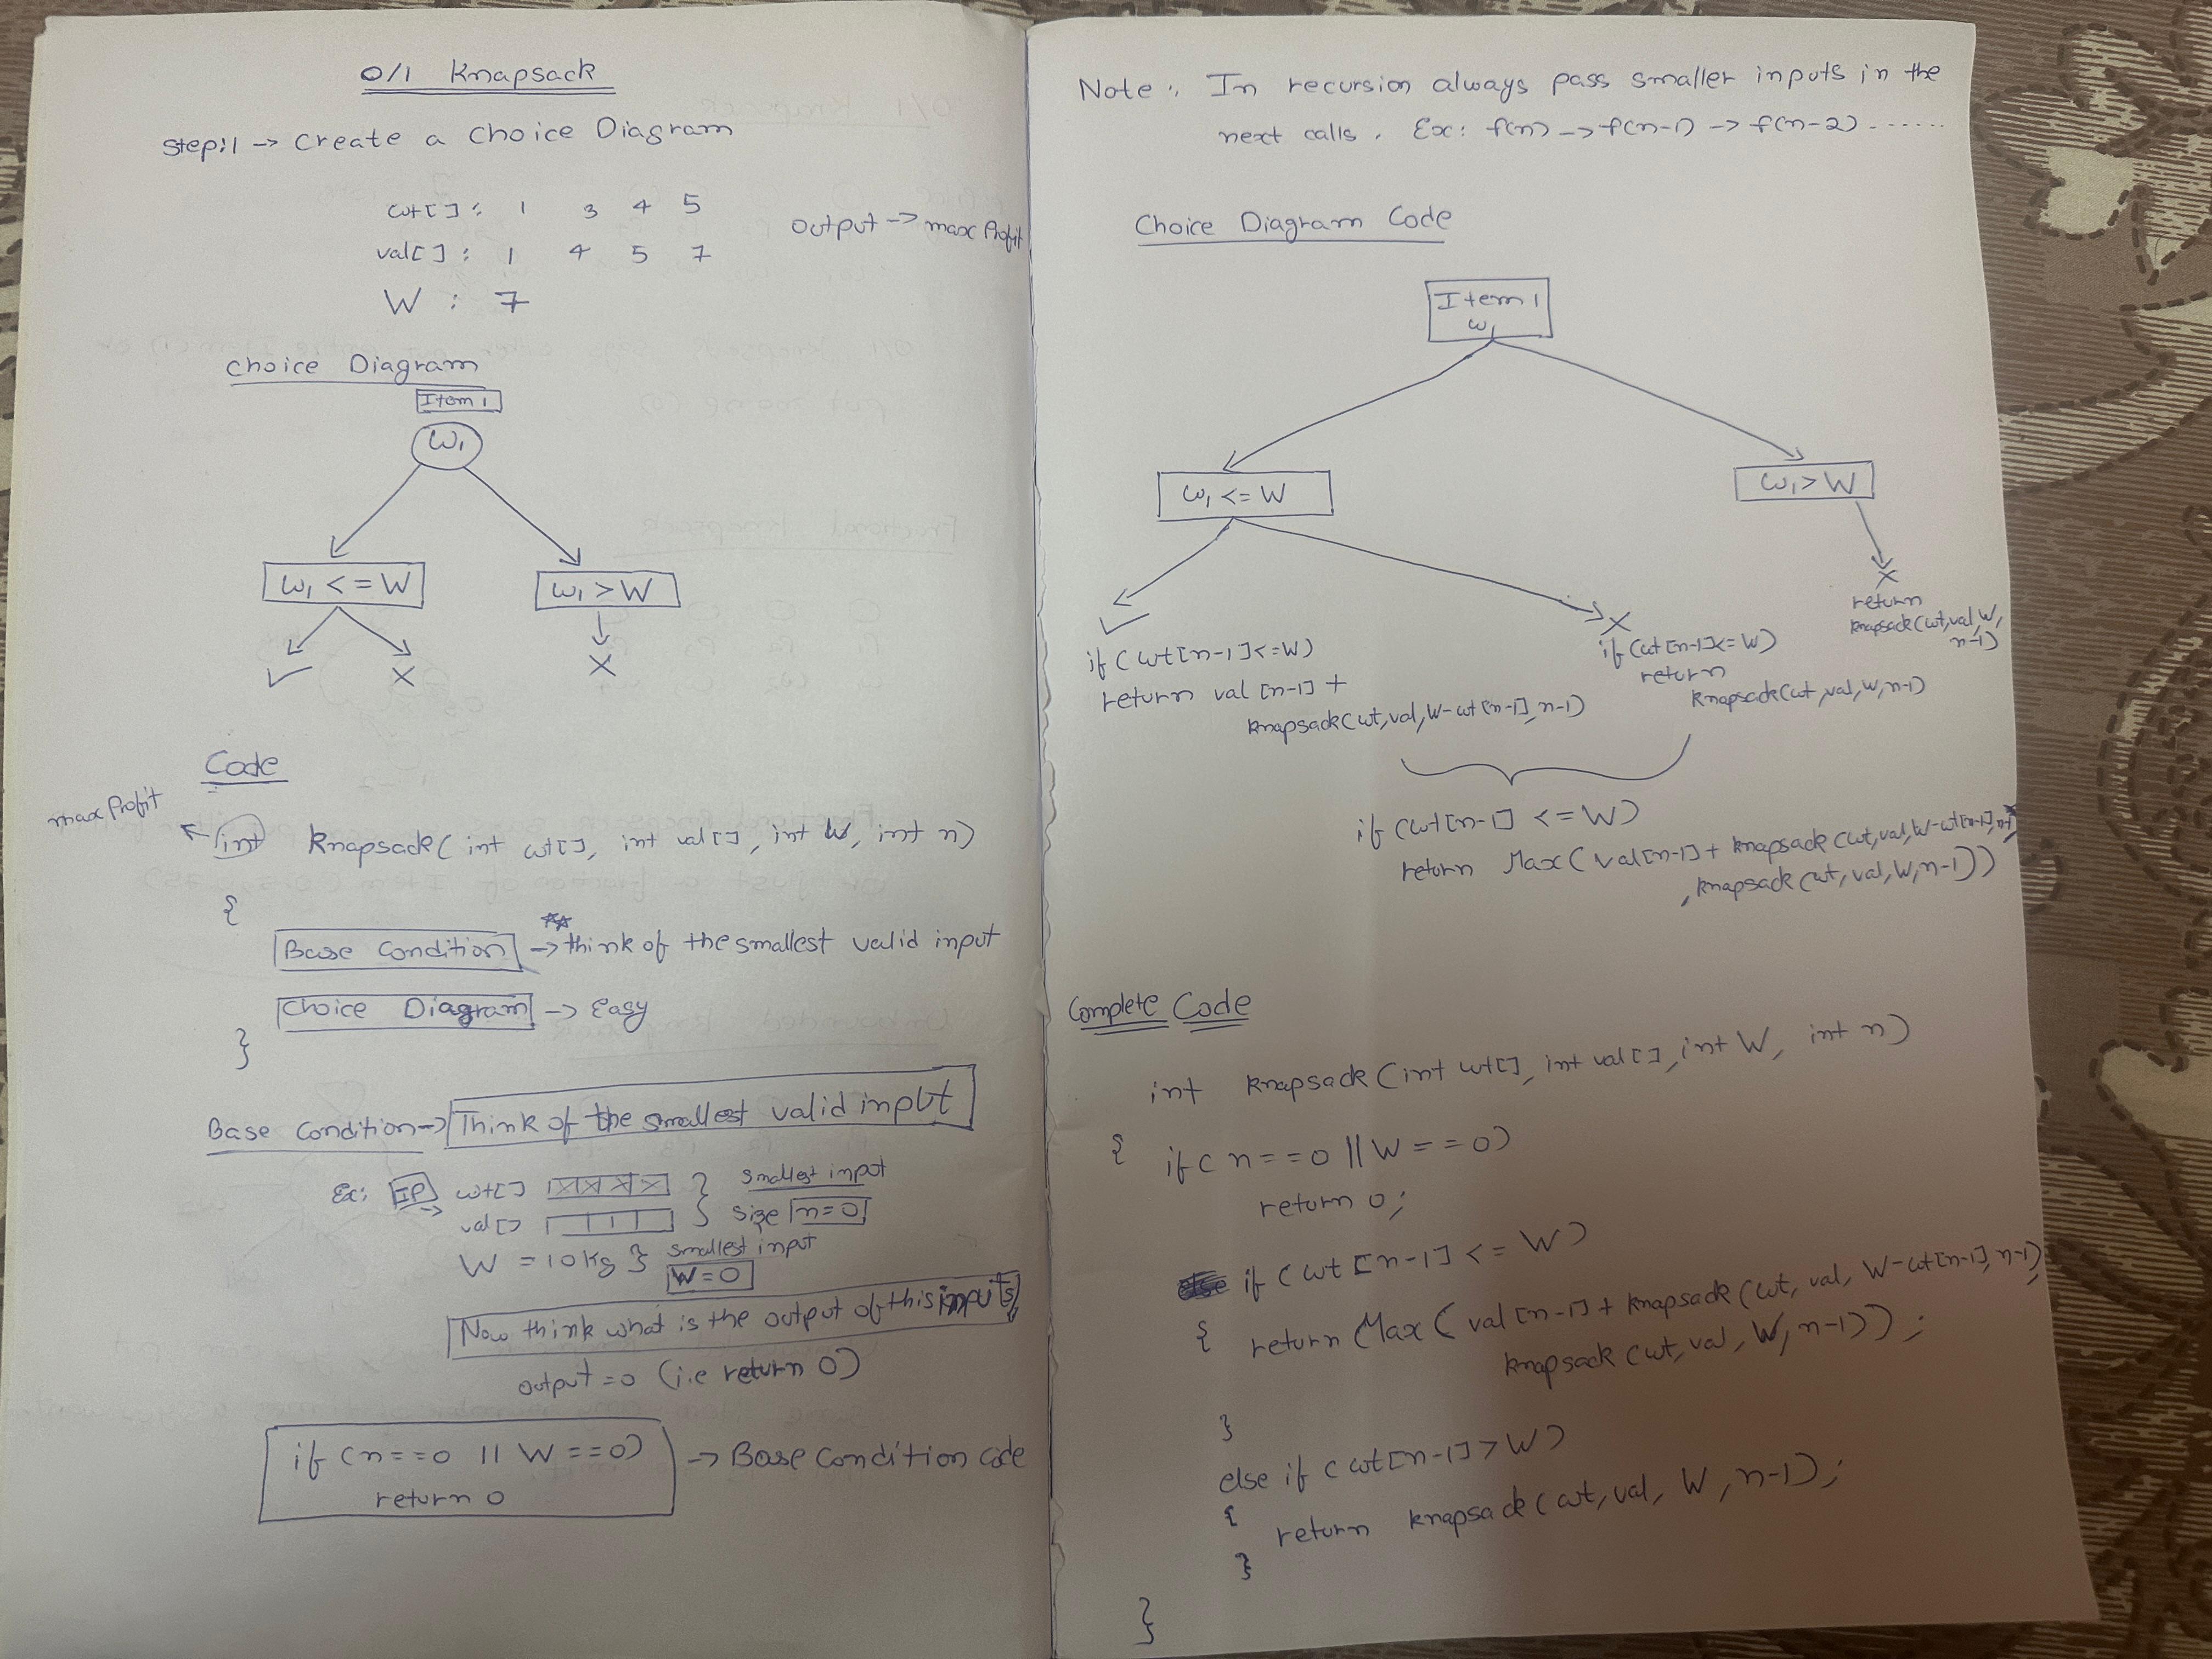 0/1 Knapsack
Step:1 -> Create a Choice Diagram
wt[] : 1 3 4 5
val[] : 1 4 5 7
output -> max Profit
W : 7
Choice Diagram
Item 1
w1
w1 <= W
w1 > W
✓ X
X
Code
max Profit
int knapsack( int wt[], int val[], int W, int n)
{
Base Condition -> think of the smallest valid input
Choice Diagram -> Easy
}
Base Condition -> Think of the smallest valid input
Ex: IP wt[] } smallest input
val[] size n=0
W = 10 kg } smallest input
W=0
Now think what is the output of this inputs
output = 0 (i.e return 0)
if (n==0 || W==0)
return 0
-> Base Condition code
Note : In recursion always pass smaller inputs in the
next calls. Ex: f(n) -> f(n-1) -> f(n-2) ......
Choice Diagram Code
Item 1
w1
w1 <= W
w1 > W
✓
if (wt[n-1]<=W)
return val[n-1] +
knapsack(wt,val,W-wt[n-1],n-1)
X
if (wt[n-1]<=W)
return
knapsack(wt,val,W,n-1)
X
return
knapsack(wt,val,W,
n-1)
if (wt[n-1] <= W)
return Max(val[n-1] + knapsack(wt,val,W-wt[n-1],n-1)
,knapsack(wt,val,W,n-1))
Complete Code
int knapsack (int wt[], int val[], int W, int n)
{ if( n==0 || W==0)
return 0;
if (wt[n-1] <= W)
{ return Max( val[n-1] + knapsack (wt, val, W-wt[n-1], n-1),
knapsack (wt, val, W, n-1));
}
else if (wt[n-1] > W)
{
return knapsack (wt, val, W, n-1);
}
}